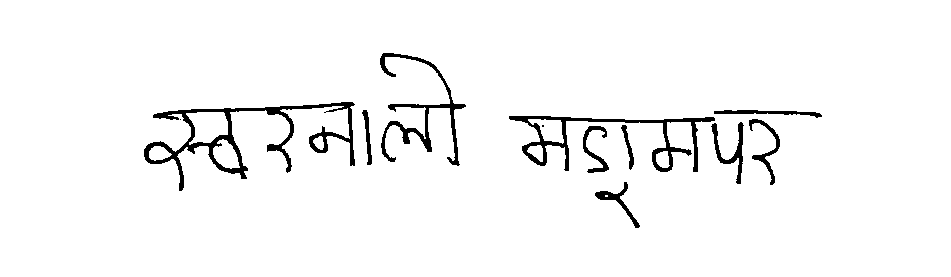 स्वरमाली मडामपर